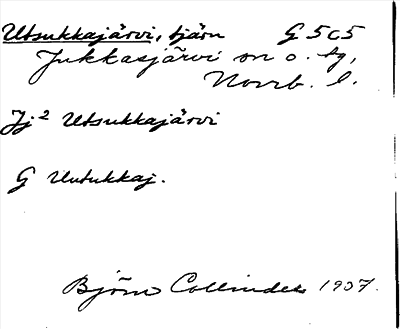 Utsukkajärvi, tjärn G 5c5
Jukkasjärvi sn o. tg,
Norrb. l.
Jj² Utsukkajärvi
G Uutukkaj.
Björn Collinder 1937.